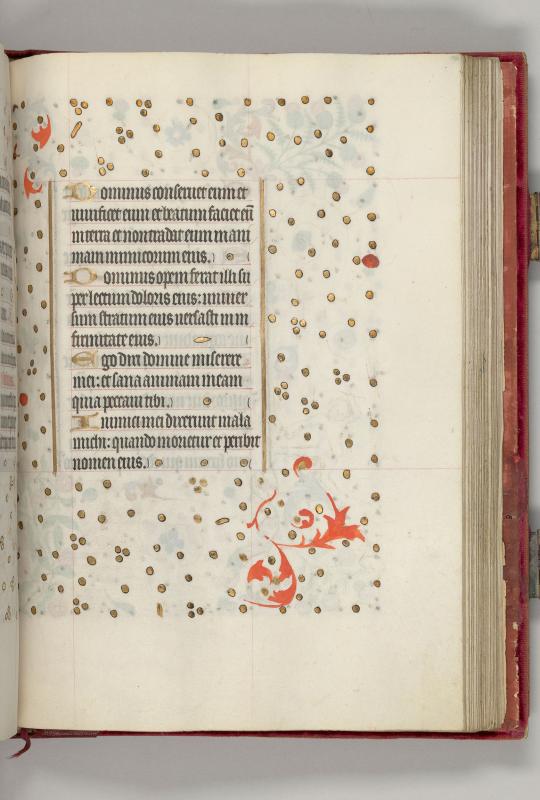 Dominus conseruet eum et
uiuificet eum et beatum faciet eū
in terra et non tradat eum in ani
mam inimicorum eius.
Dominus opem ferat illi su
per lectum doloris eius: uniuer
sum stratum eius uersasti in in
firmitate eius.
Ego dixi domine miserere
mei: et sana animam meam
quia peccaui tibi.
Inimici mei dixerunt mala
michi: quando morietur et peribit
nomen eius.